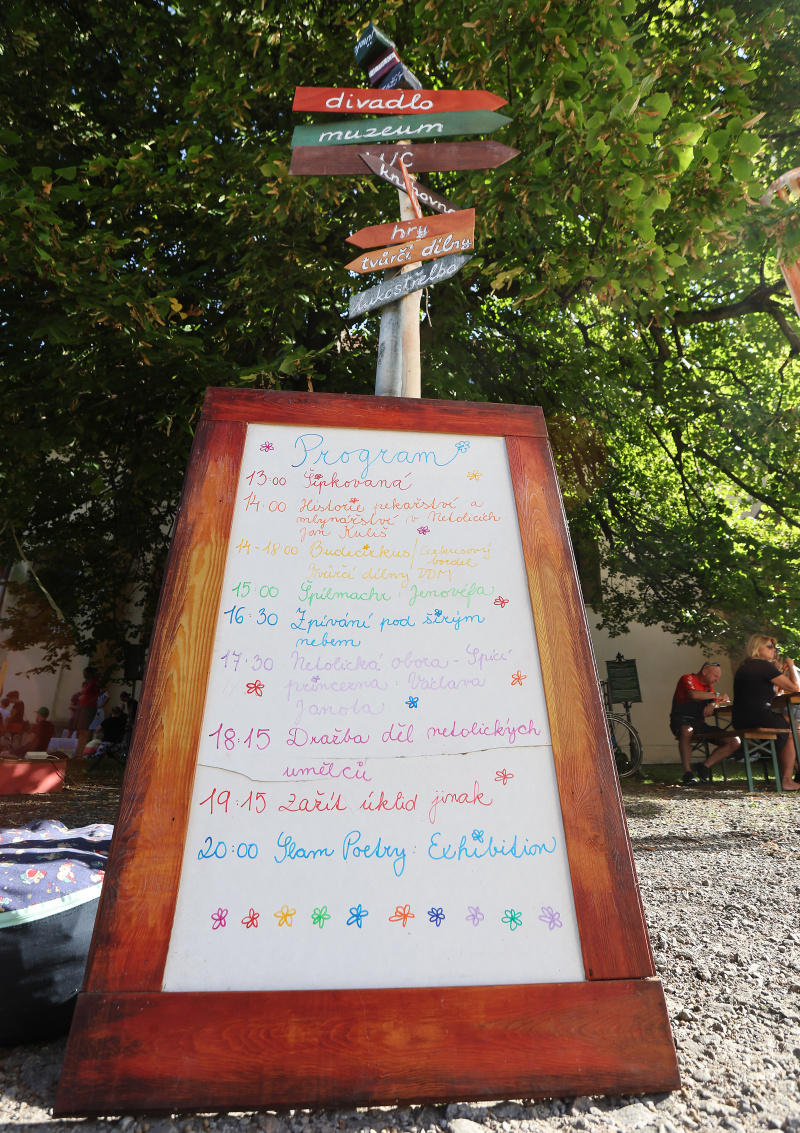 divadlo
muzeum
knihovna
hry
tvůrčí dílny
lukostřelba
Program
13:00 Šípkovaná
14:00 Historie pekařství a
mlynářství v Netolicích
Jan Kuliš
14-18:00 Budečirkus/Cirkusový
bordel
Tvůrčí dílny DDM
15:00 Špílmachr: Jenovéfa
16:30 Zpívání pod širým
nebem
17:30 Netolická obora - Spící
princezna: Václava
Janota
18:15 Dražba děl netolických
umělců
19:15 Zažít úklid jinak
20:00 Slam Poetry: Exhibition